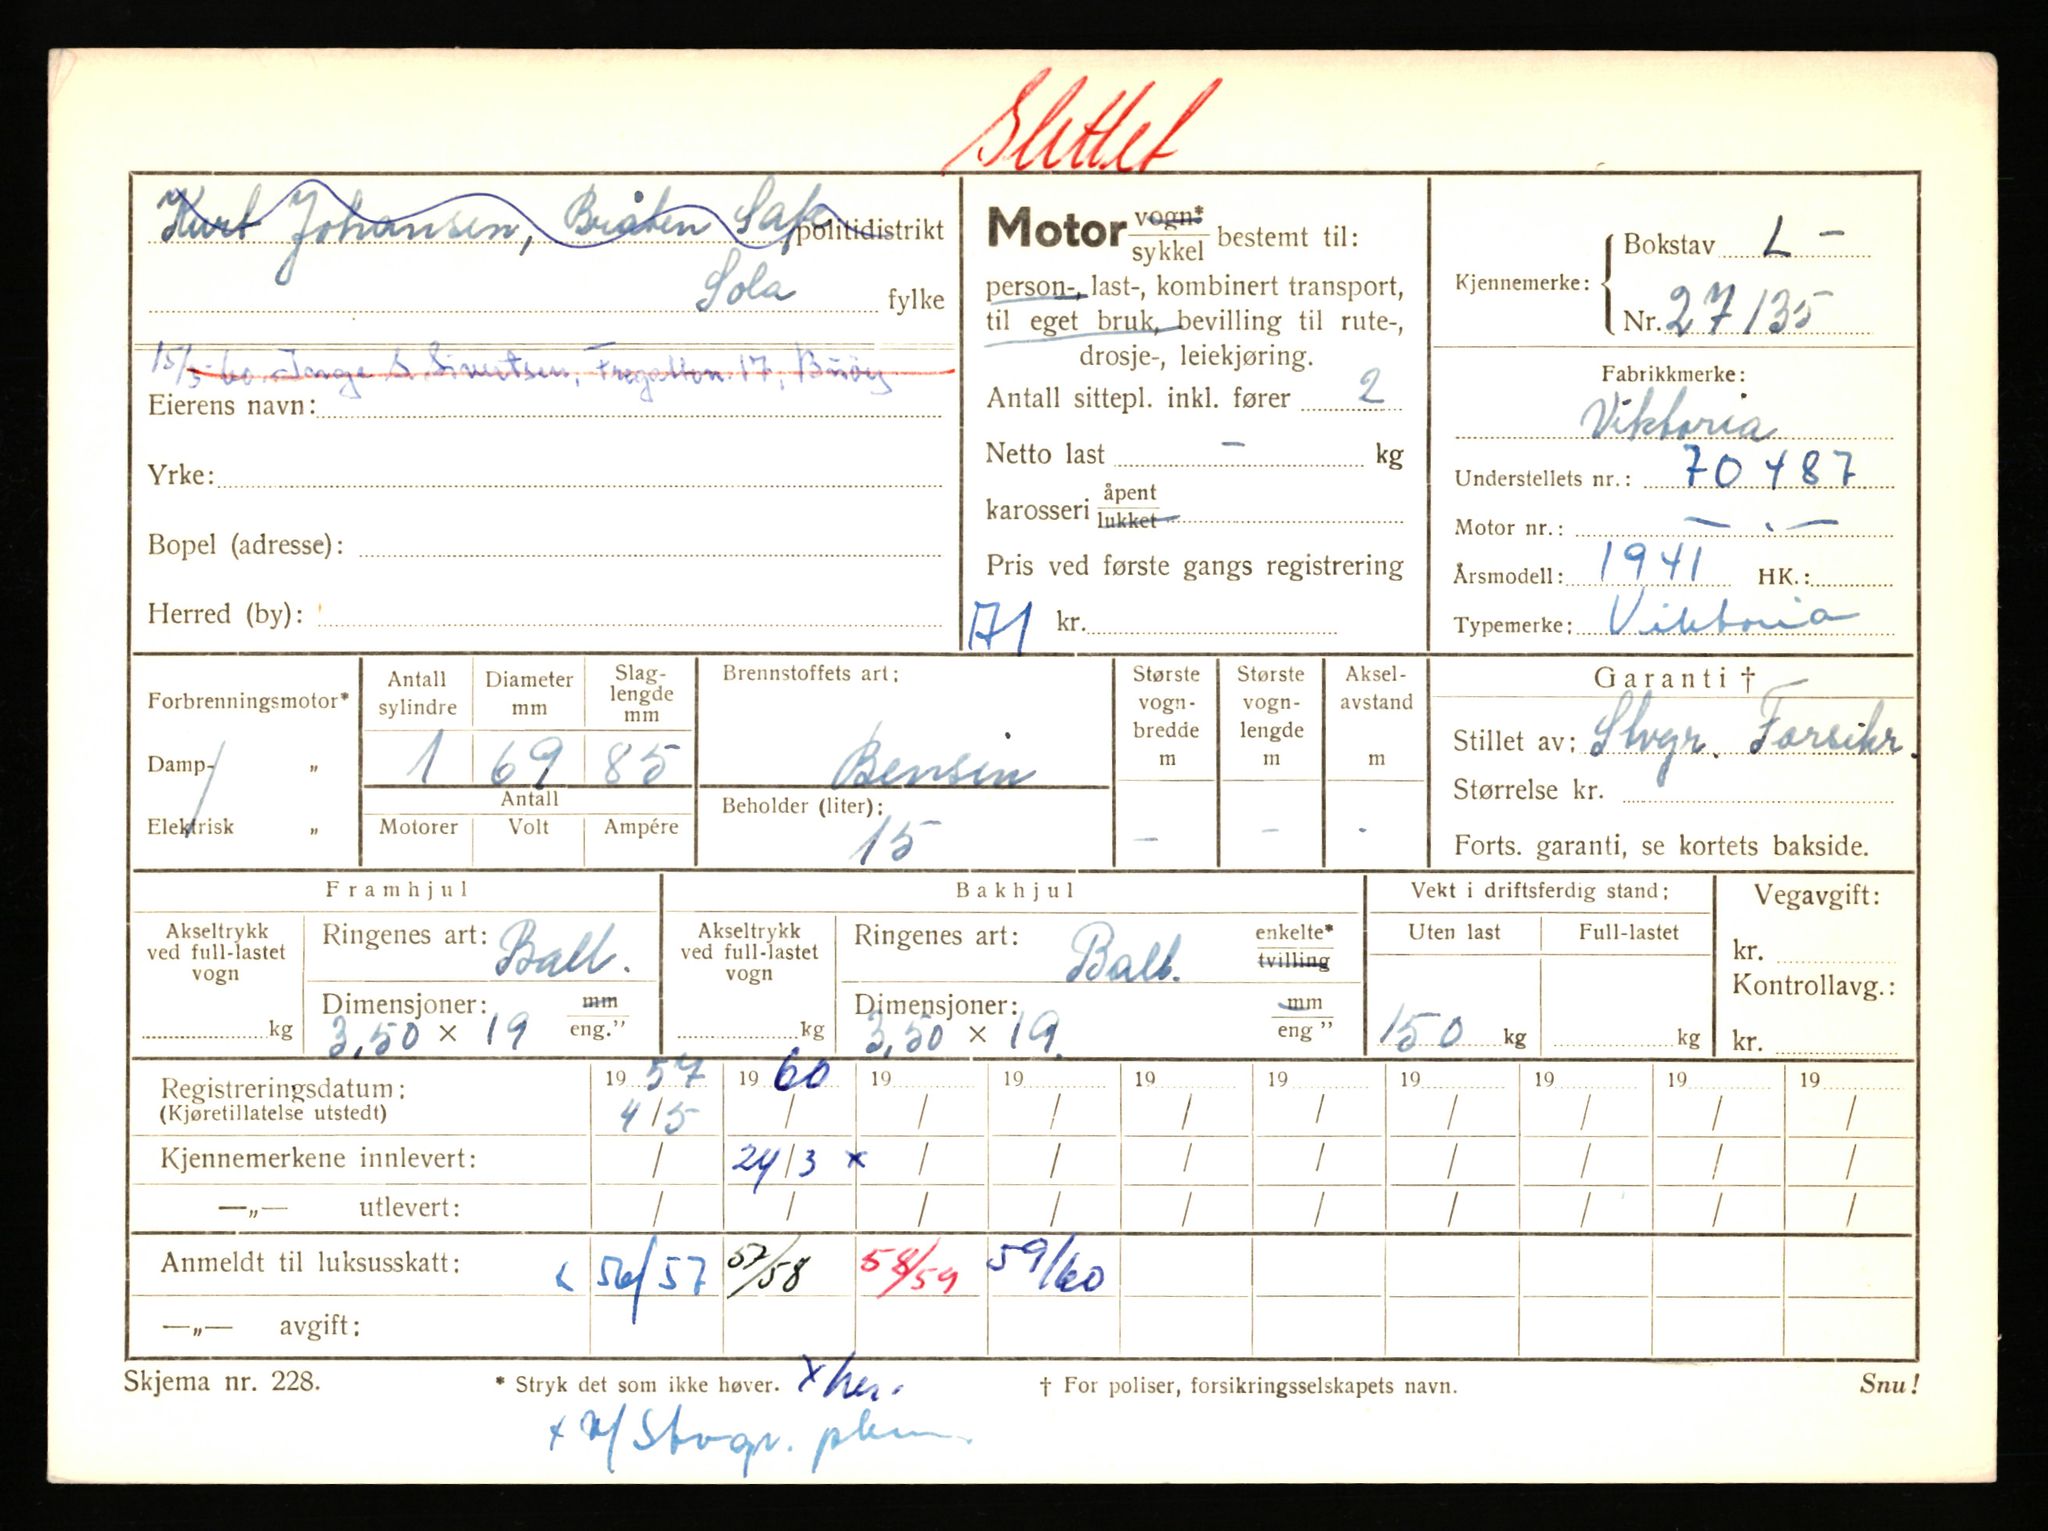 Slettet
Kurt Johansen, Bråten Saf politidistrikt
Sola fylke
15/5-60 Inge S Sivertsen, Fregattvn. 17, Buøy
Eierens navn:
Yrke:
Bopel (adresse):
Herred (by):
Motor vogn* / sykkel bestemt til:
person-, last-, kombinert transport,
til eget bruk, bevilling til rute-,
drosje-, leiekjøring.
Antall sittepl. inkl. fører 2
Netto last – kg
karosseri åpent / lukket
Pris ved første gangs registrering
kr.
Kjennemerke: Bokstav L –
Nr. 27135
Fabrikkmerke:
Viktoria
Understellets nr.: 70487
Motor nr.: — . —
Årsmodell: 1941 HK.:
Typemerke: Viktoria
Forbrenningsmotor*
Damp- „
Elektrisk „
Antall sylindre 1
Diameter mm 69
Slag-lengde mm 85
Antall
Motorer Volt Ampére
Brennstoffets art:
Bensin
Beholder (liter):
15
Største vogn-bredde m –
Største vogn-lengde m –
Aksel-avstand m -
Garanti †
Stillet av: Stvgr. Forsikr.
Størrelse kr.
Forts. garanti, se kortets bakside.
Framhjul
Akseltrykk ved full-lastet vogn kg
Ringenes art: Ball.
Dimensjoner: mm / eng.”
3,50 × 19
Bakhjul
Akseltrykk ved full-lastet vogn kg
Ringenes art: Ball. enkelte* / tvilling
Dimensjoner: mm / eng ”
3,50 × 19
Vekt i driftsferdig stand:
Uten last Full-lastet
150 kg kg
Vegavgift:
kr.
Kontrollavg.:
kr.
Registreringsdatum: 19 57 19 60 19 19 19 19 19 19 19 19
(Kjøretillatelse utstedt) 4/5 / / / / / / / / /
Kjennemerkene innlevert: / 24/3 × / / / / / / / /
—„— utlevert: / / / / / / / / / /
Anmeldt til luksusskatt: 56/57 57/58 58/59 59/60
—„— avgift:
Skjema nr. 228. * Stryk det som ikke høver. × her. † For poliser, forsikringsselskapets navn. Snu!